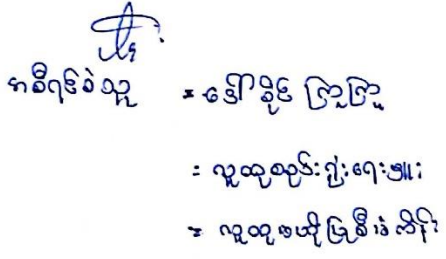 အစီရင်ခံသူ = ဒေါ်ခိုင်ကြူကြူ
= လူထုစည်းရုံးရေးမှူး
= လူထုဗဟိုပြုစီမံကိန်း